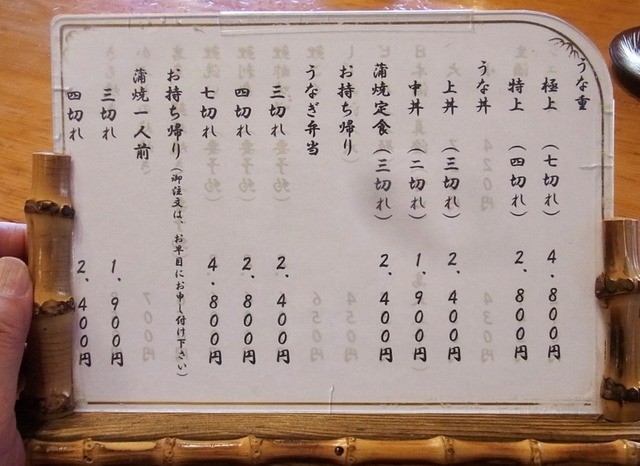 うな重
極上 (七切れ) 4、800円
特上 (四切れ) 2、800円
うな丼
上丼 (三切れ) 2、400円
中丼 (二切れ) 1、900円
蒲焼定食 (三切れ) 2、400円
お持ち帰り
うなぎ弁当
三切れ 2、400円
四切れ 2、800円
七切れ 4、800円
お持ち帰り(御注文は、お早目にお申し付け下さい)
蒲焼一人前
三切れ 1、900円
四切れ 2、400円